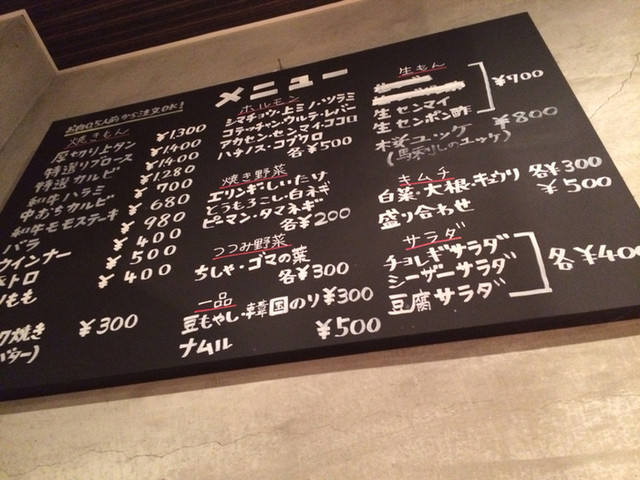 メニュー
お肉0.5人前から注文OK!
焼きもん
厚切り上タン ¥1300
特選リブロース ¥1400
特選カルビ ¥1400
和牛ハラミ ¥1280
中おちカルビ ¥700
和牛モモステーキ ¥680
バラ ¥980
ウインナー ¥400
トロ ¥500
もも ¥400
焼き ¥300
バター)
ホルモン
シマチョウ・上ミノ・ツラミ
コテッチャン・ウルテ・レバー
アカセン・センマイ・ココロ
ハチノス・コブクロ
各¥500
焼き野菜
エリンギ・しいたけ
とうもろこし・白ネギ
ピーマン・タマネギ
各¥200
つつみ野菜
ちしゃ・ゴマの葉
各¥300
一品
豆もやし・韓国のり ¥300
ナムル ¥500
生もん
生センマイ ¥900
生センポン酢
桜ユッケ ¥800
(馬刺しのユッケ)
キムチ
白菜・大根・キュウリ 各¥300
盛り合わせ ¥500
サラダ
チョレギサラダ
シーザーサラダ 各¥400
豆腐サラダ